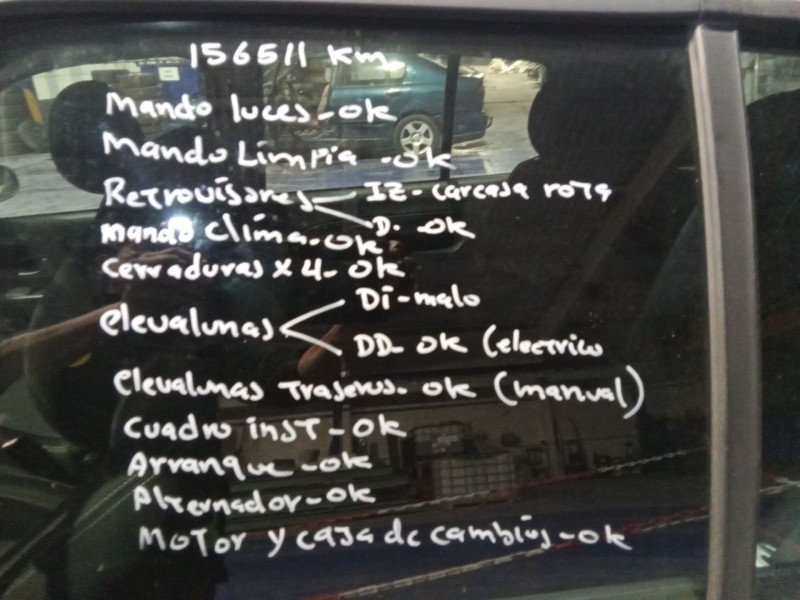 156511 km
Mando luces-ok
Mando Limpia -ok
Retrovisores IZ-carcasa rota
D. -ok
mando clima-ok
cerraduras x 4-ok
elevalunas Di-malo
DD- ok (electrico
elevalunas traseros- ok (manual)
cuadro inst-ok
Arranque-ok
Alternador-ok
Motor y caja de cambios-ok